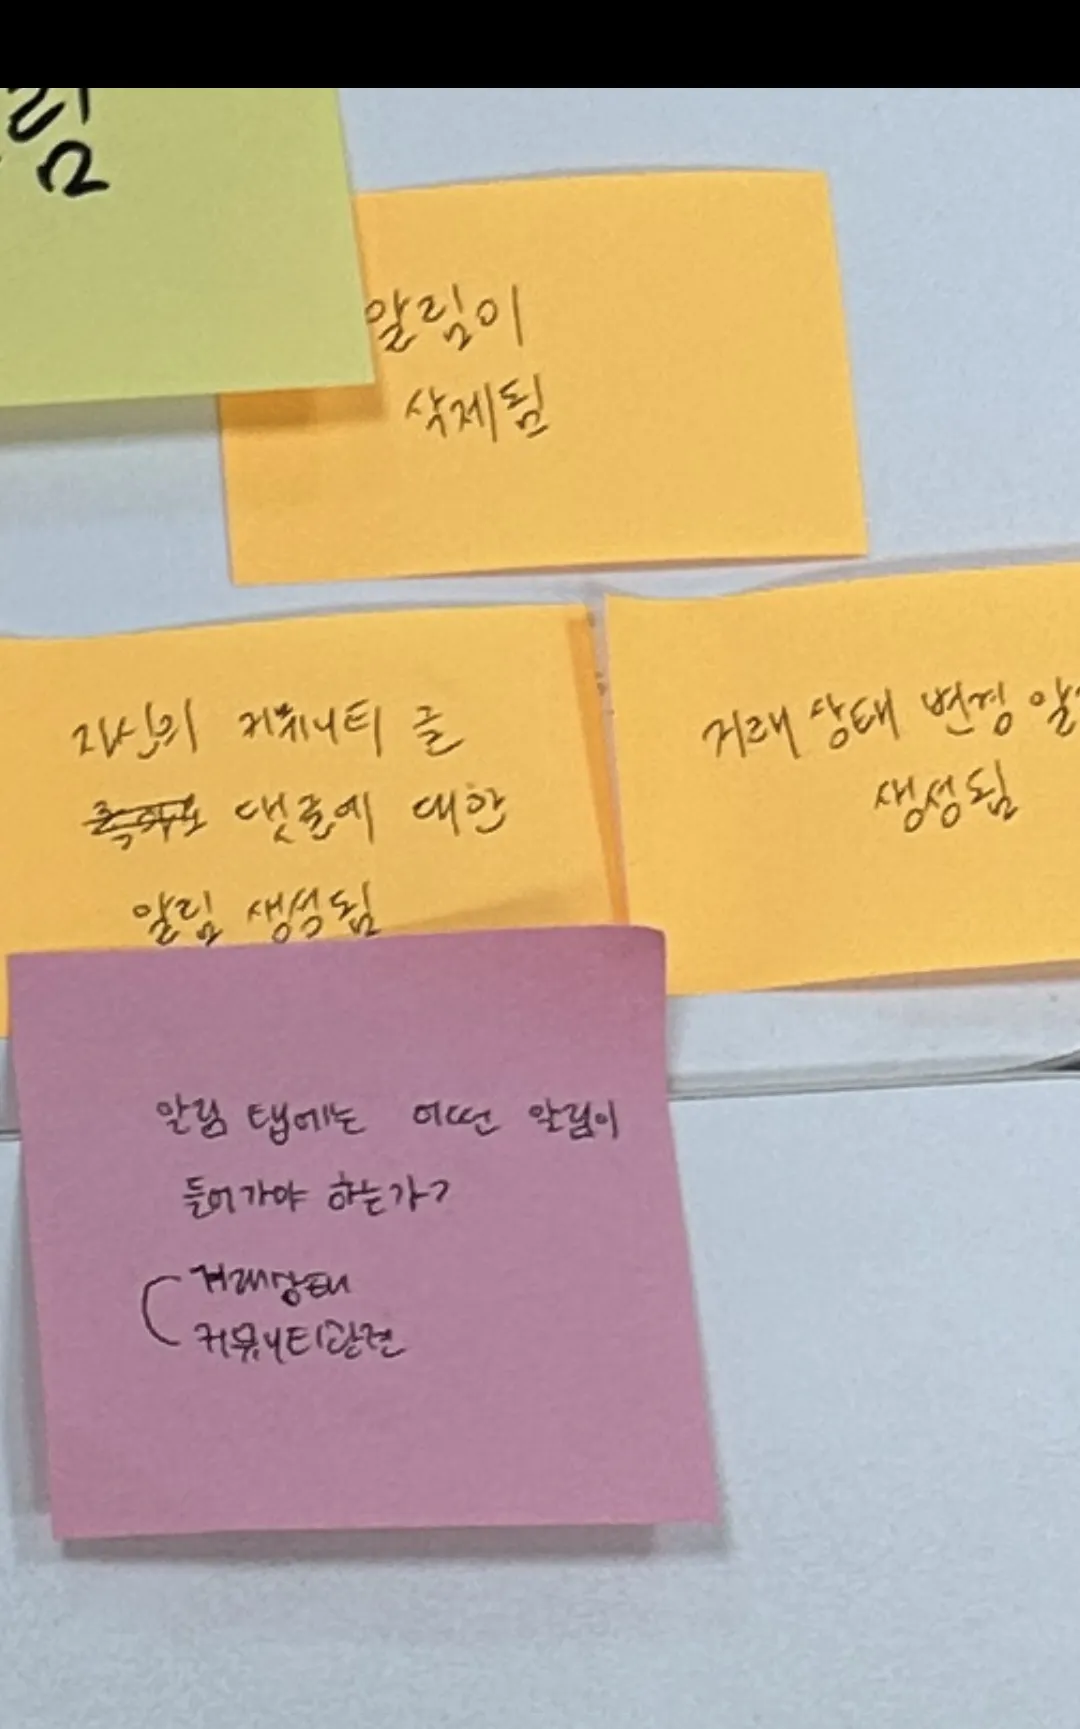 림
알림이
삭제됨
자신의 커뮤니티 글
댓글에 대한
알림 생성됨
거래 상태 변경
생성됨
알림 탭에는 어떤 알림이
들어가야 하는가?
거래상태
커뮤니티관련